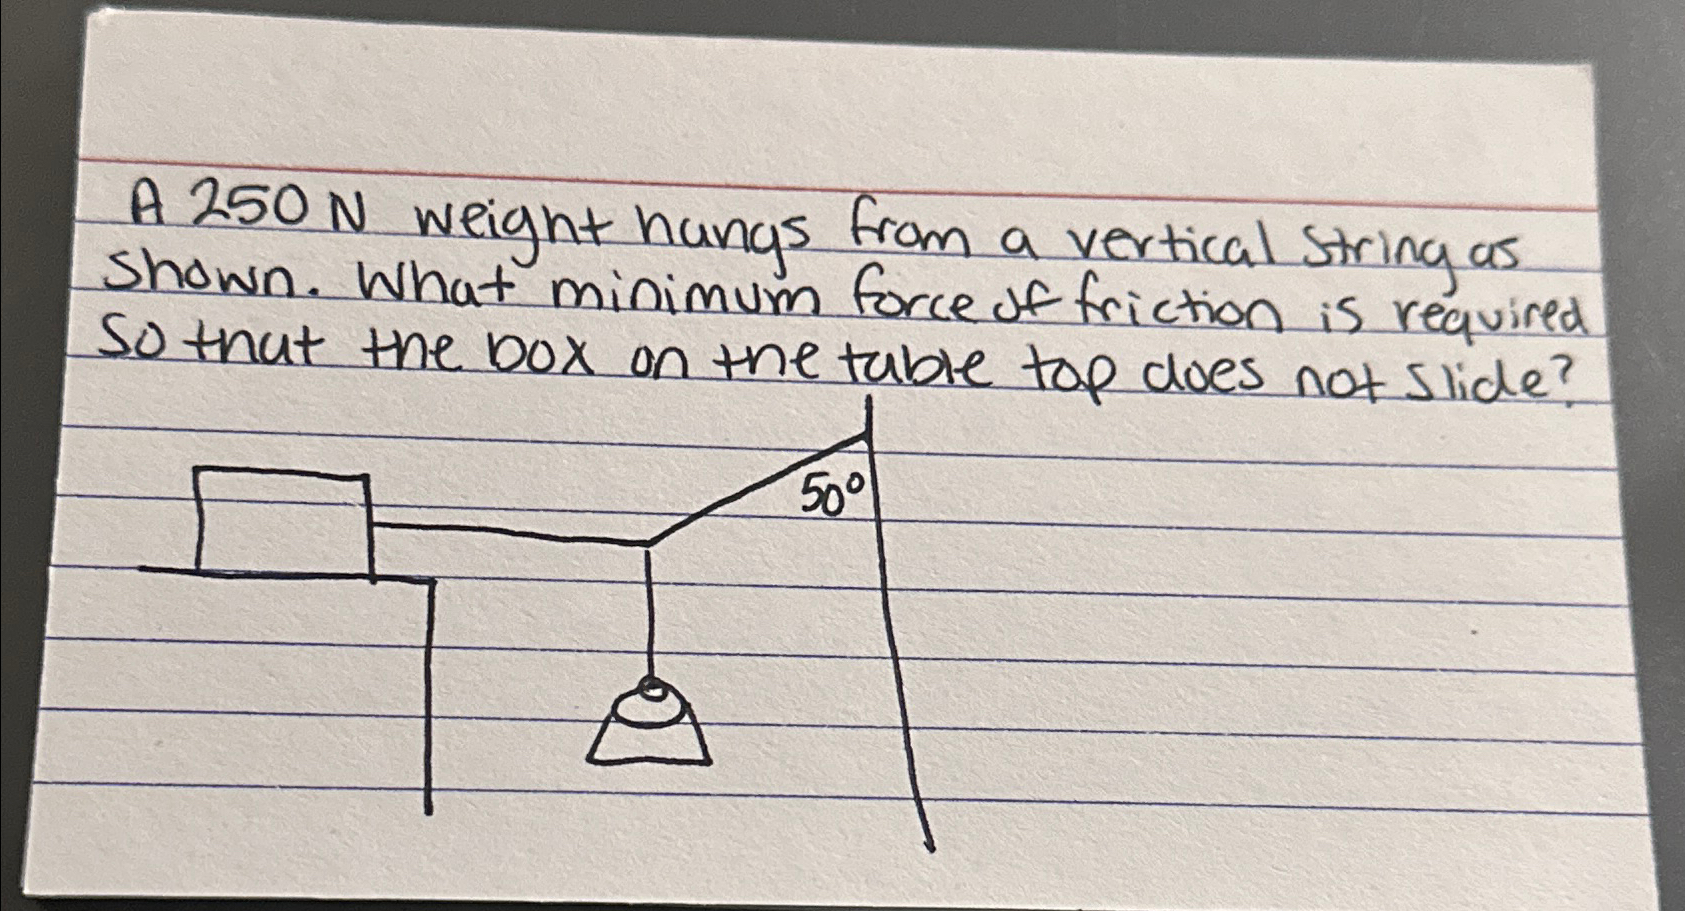 A 250 N weight hangs from a vertical string as
shown. What minimum force of friction is required
so that the box on the table top does not slide?
50°